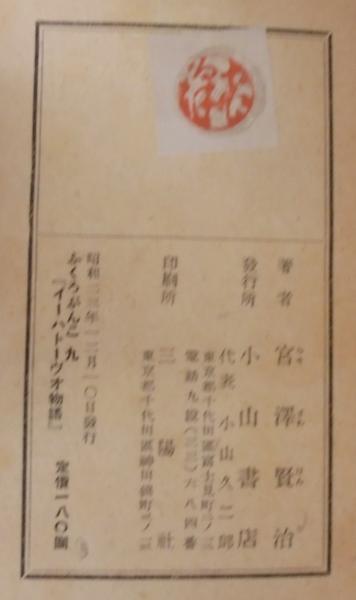 著者 宮澤賢治
みや ざわ けん じ
發行所 小山書店
代表 小山久二郎
東京都千代田區富士見町二ノ一二
電話九段(33)六八四番
印刷所 三陽社
東京都千代田區神田錦町
昭和二三年一二月一〇日發行
九
『イーハトーヴオ物語』
定價一八〇圓